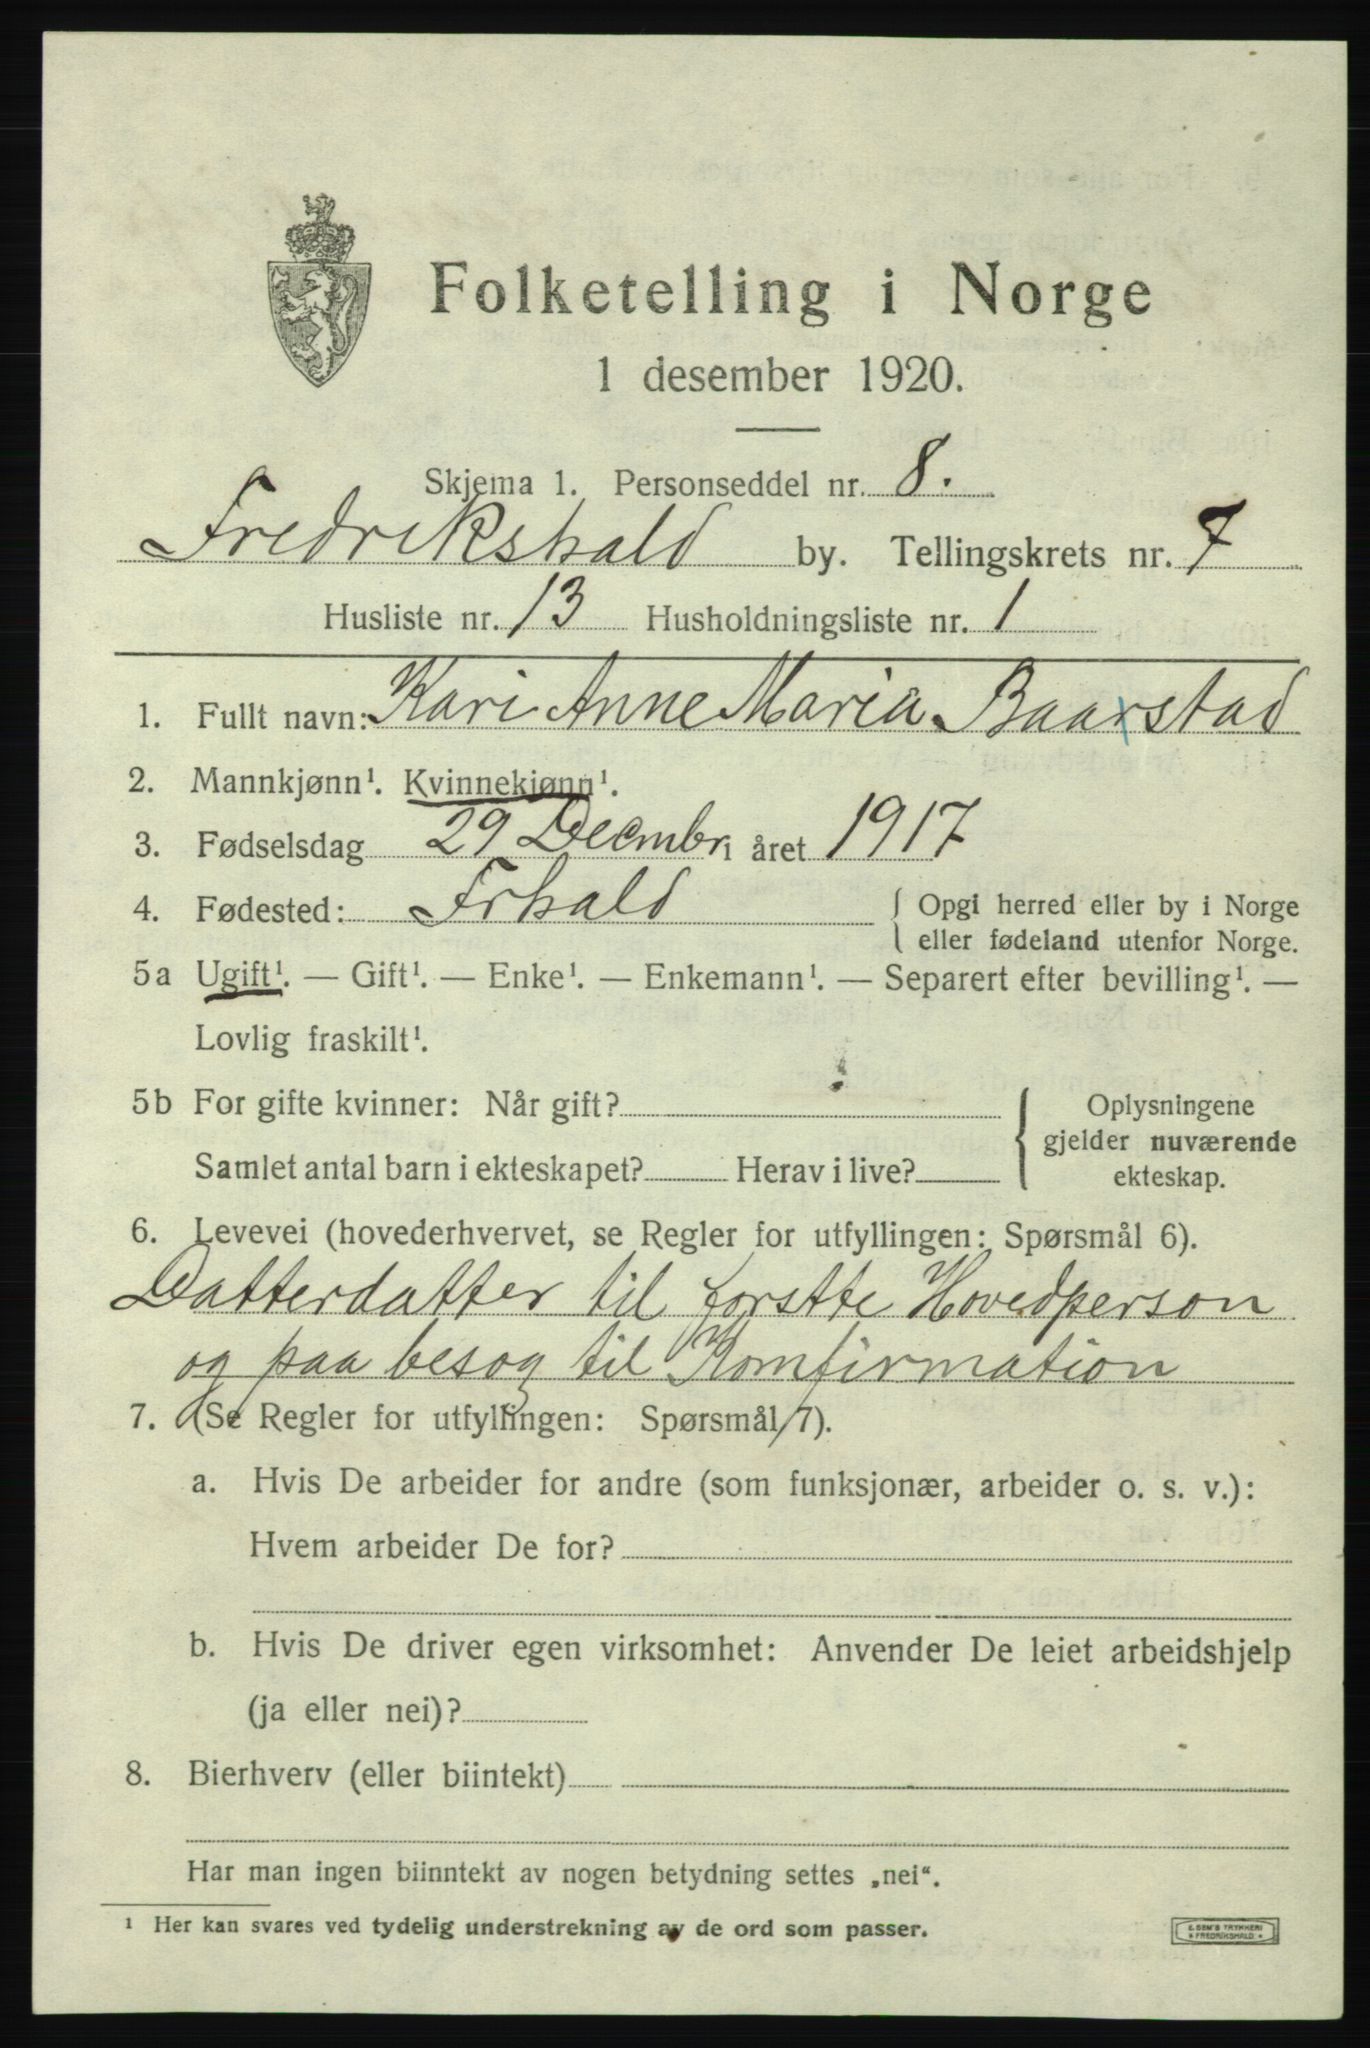 Folketelling i Norge
1 desember 1920.
Skjema 1. Personseddel nr. 8.
Fredrikshald by. Tellingskrets nr. 7
Husliste nr. 13 Husholdningsliste nr. 1
1. Fullt navn: Kari Anne Maria Baarstad
2. Mannkjønn¹. Kvinnekjønn¹.
3. Fødselsdag 29 Decmbr i året 1917
4. Fødested: Frhald { Opgi herred eller by i Norge
eller fødeland utenfor Norge.
5a Ugift¹. — Gift¹. — Enke¹. — Enkemann¹. — Separert efter bevilling¹. —
Lovlig fraskilt¹.
5b For gifte kvinner: Når gift? { Oplysningene
gjelder nuværende
Samlet antal barn i ekteskapet? Herav i live?
ekteskap.
6. Levevei (hovederhvervet, se Regler for utfyllingen: Spørsmål 6).
Datterdatter til forstte Hovedperson
og paa besog til Komfirmation
7. (Se Regler for utfyllingen: Spørsmål 7).
a. Hvis De arbeider for andre (som funksjonær, arbeider o. s. v.):
Hvem arbeider De for?
b. Hvis De driver egen virksomhet: Anvender De leiet arbeidshjelp
(ja eller nei)?
8. Bierhverv (eller biintekt)
Har man ingen biinntekt av nogen betydning settes „nei“.
¹ Her kan svares ved tydelig understrekning av de ord som passer.
E. SEM'S TRYKKERI
FREDRIKSHALD